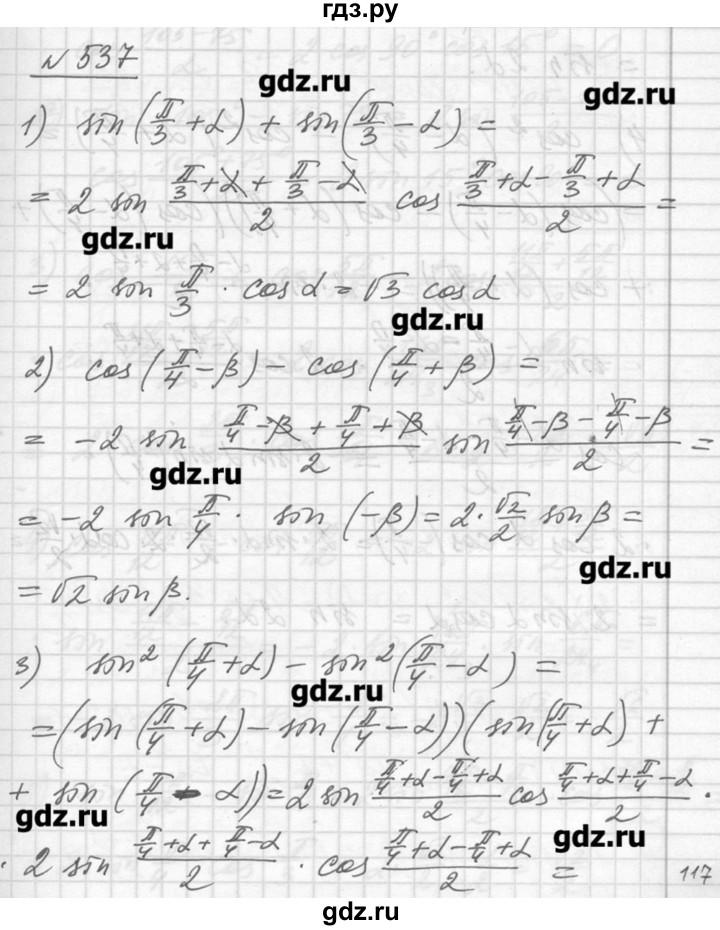 гдз.ру
№ 537
gdz.ru
gdz.ru
1) sin(π/3 + α) + sin(π/3 − α) =
= 2 sin (π/3 + α + π/3 − α)/2 cos (π/3 + α − π/3 + α)/2 =
gdz.ru
= 2 sin π/3 · cos α = √3 cos α
gdz.ru
2) cos(π/4 − β) − cos(π/4 + β) =
= −2 sin (π/4 − β + π/4 + β)/2 sin (π/4 − β − π/4 − β)/2 =
gdz.ru
= −2 sin π/4 · sin(−β) = 2 · √2/2 sin β =
gdz.ru
= √2 sin β.
3) sin² (π/4 + α) − sin² (π/4 − α) =
gdz.ru
= (sin(π/4 + α) − sin(π/4 − α))(sin(π/4 + α) +
+ sin(π/4 − α)) = 2 sin (π/4 + α − π/4 + α)/2 cos (π/4 + α + π/4 − α)/2 ·
gdz.ru
gdz.ru
· 2 sin (π/4 + α + π/4 − α)/2 · cos (π/4 + α − π/4 + α)/2 =
117
gdz.ru